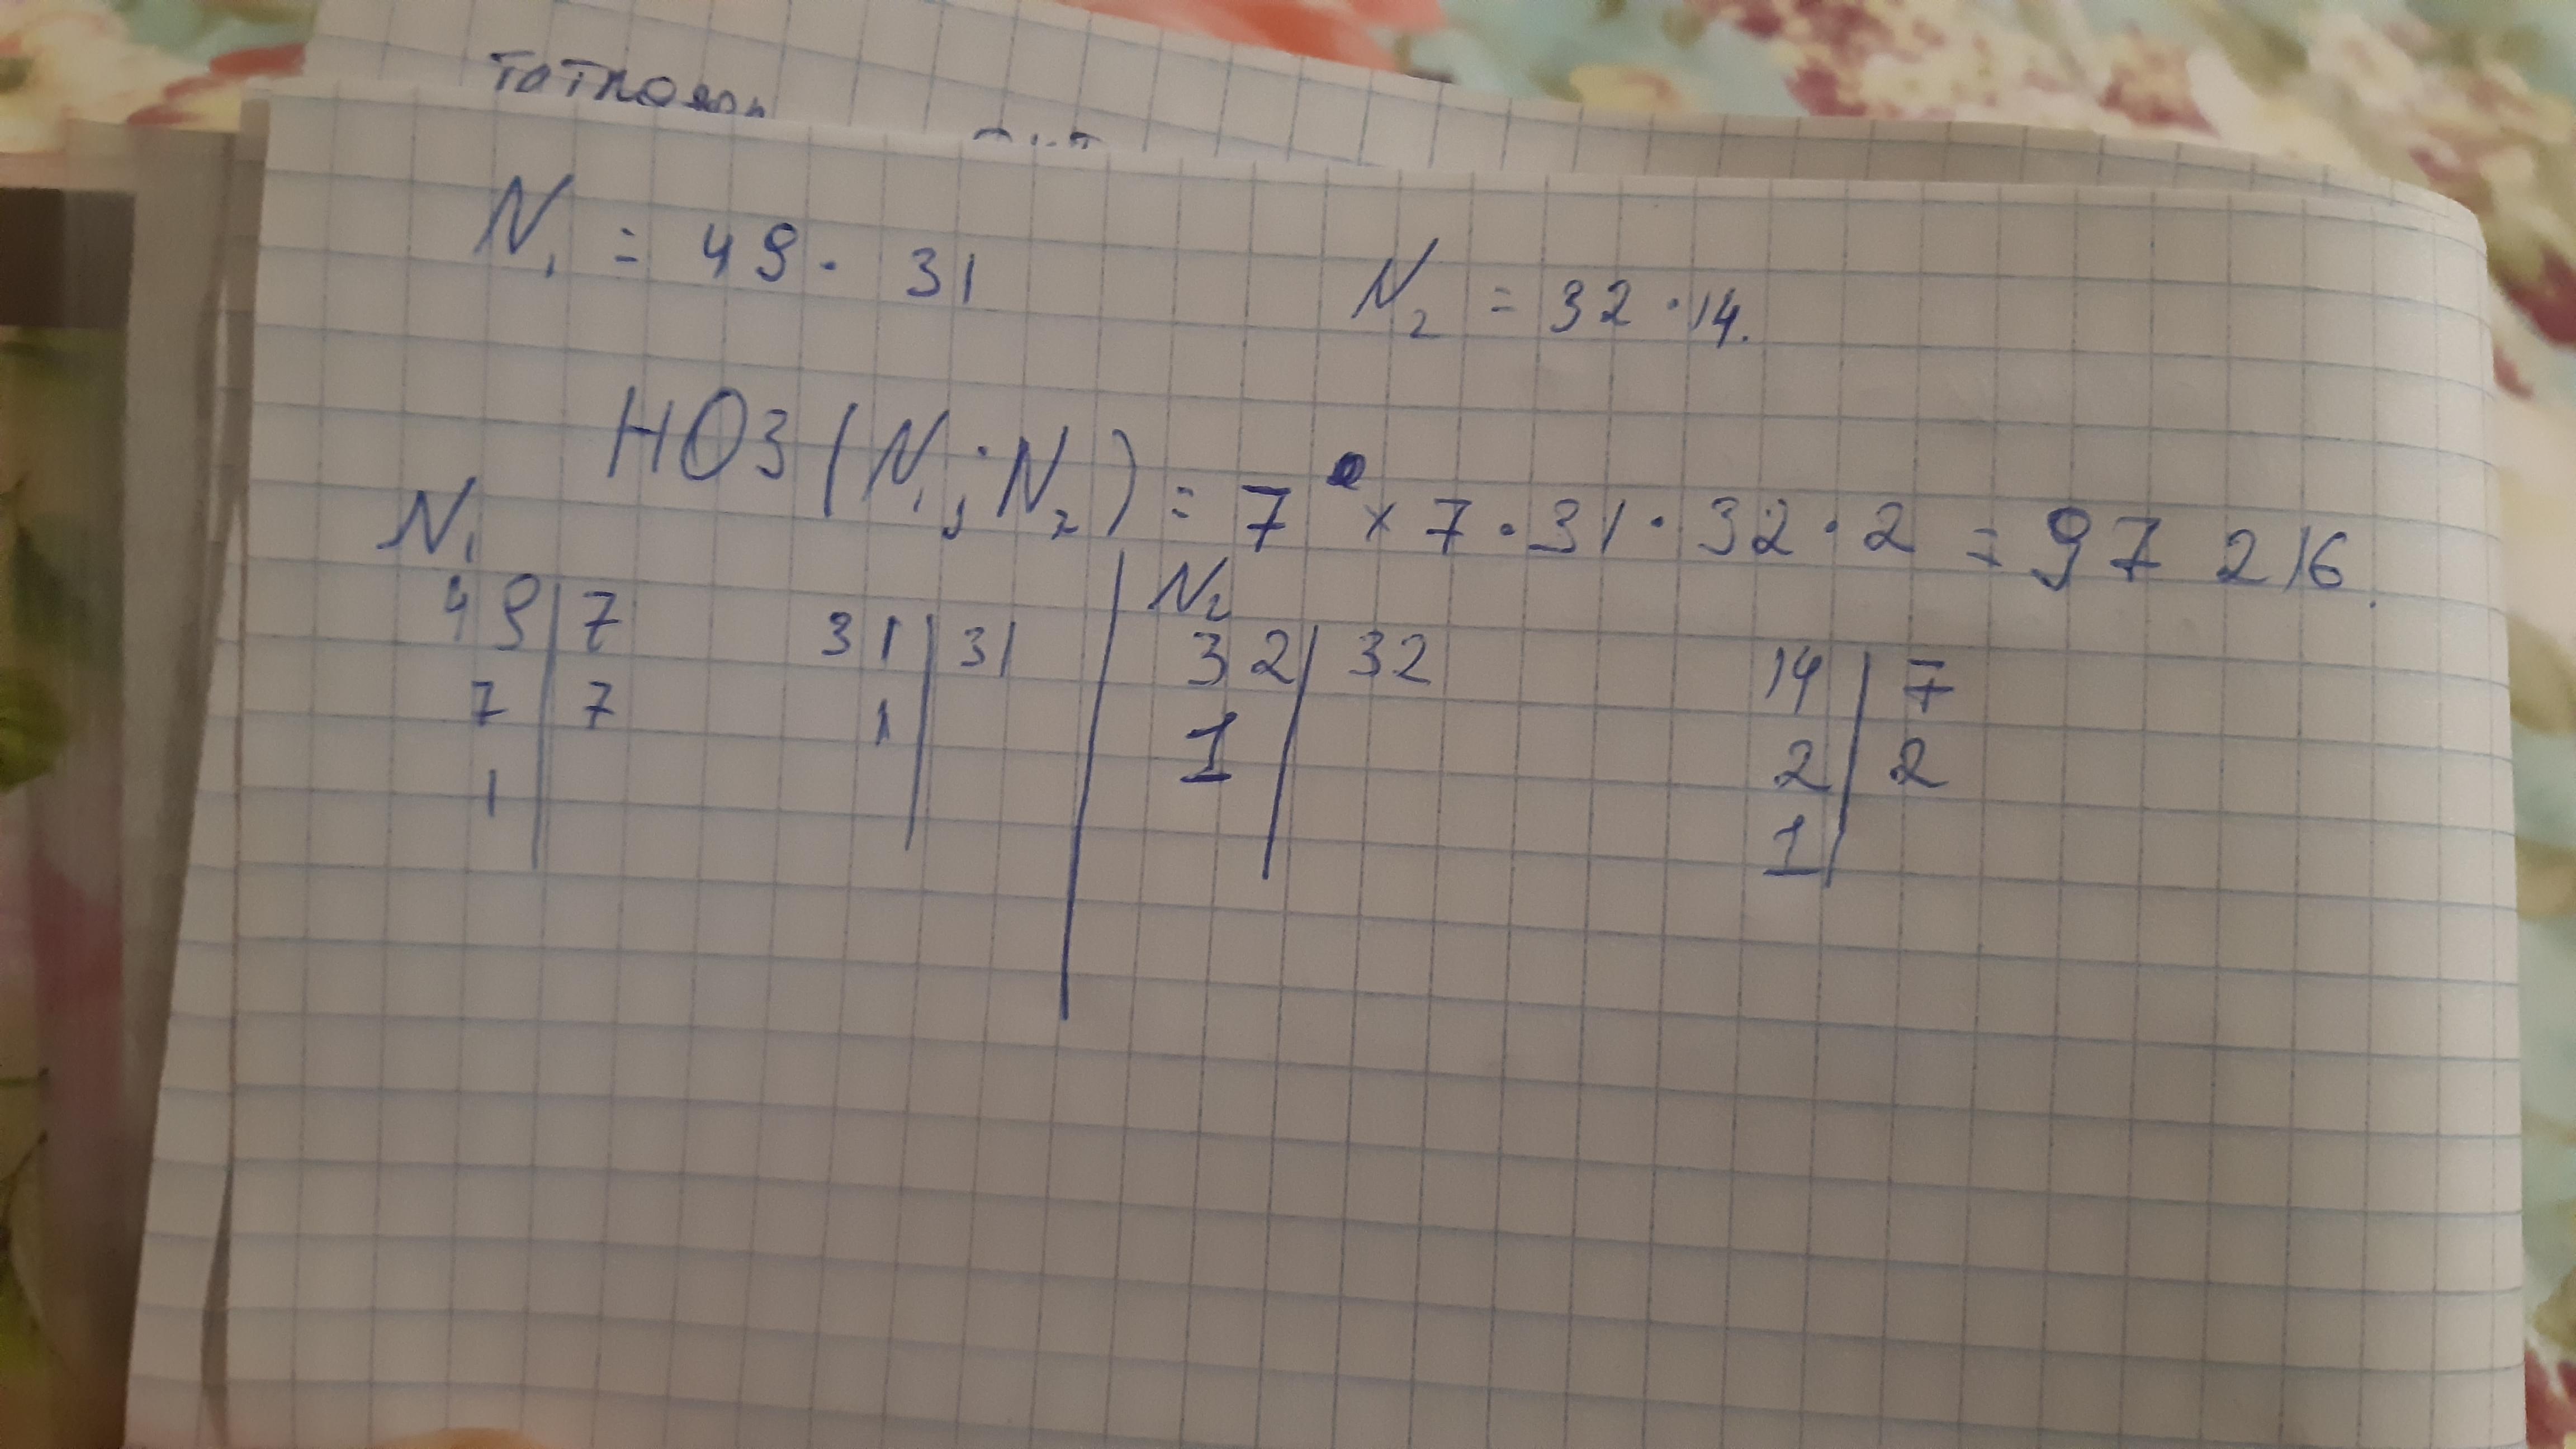 N₁ = 49 · 31
N₂ = 32 · 14.
НОЗ (N₁; N₂) = 7 × 7 · 31 · 32 · 2 = 97 216.
N₁
N₂
49 | 7
7 | 7
1 |
31 | 31
1 |
32 | 32
1 |
14 | 7
2 | 2
1 |